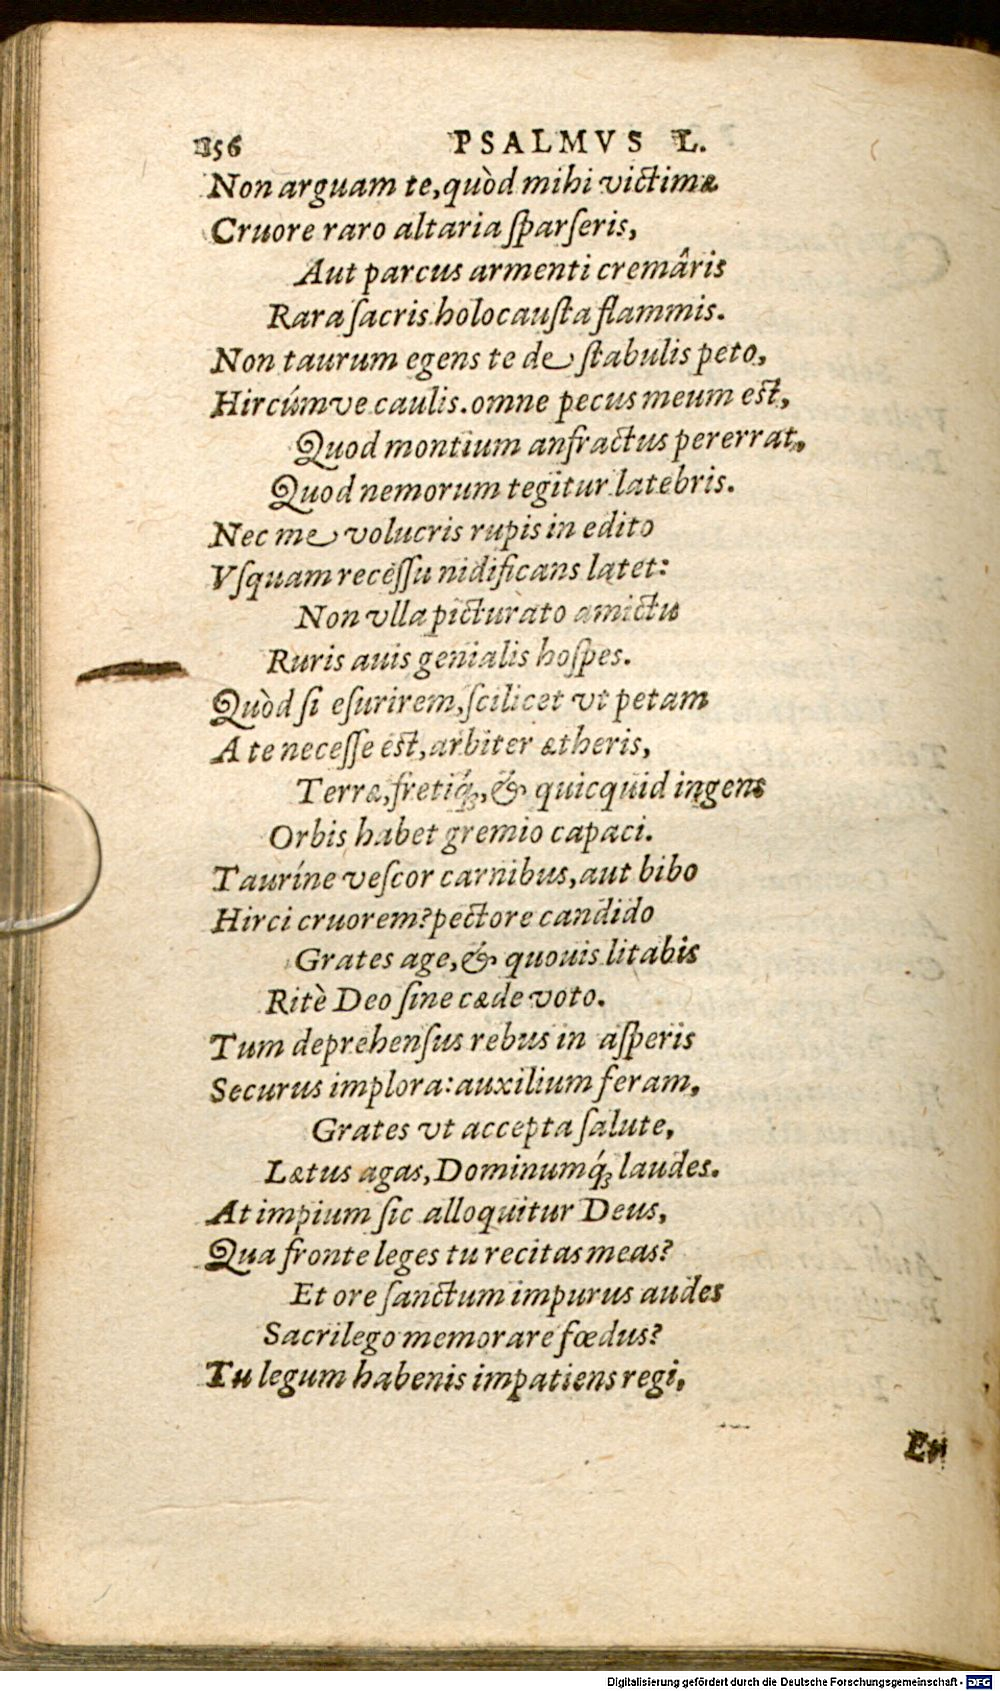 156 PSALMVS L.
Non arguam te, quòd mihi victimæ
Cruore raro altaria ſparſeris,
Aut parcus armenti cremâris
Rara ſacris holocauſta flammis.
Non taurum egens te de ſtabulis peto,
Hircúmve caulis. omne pecus meum eſt,
Quod montium anfractus pererrat,
Quod nemorum tegitur latebris.
Nec me volucris rupis in edito
Vſquam receſſu nidificans latet:
Non vlla picturato amictu
Ruris auis genialis hoſpes.
Quòd ſi eſurirem, ſcilicet vt petam
A te neceſſe eſt, arbiter ætheris,
Terræ, fretiq́;, & quicquid ingens
Orbis habet gremio capaci.
Tauríne veſcor carnibus, aut bibo
Hirci cruorem? pectore candido
Grates age, & quouis litabis
Ritè Deo ſine cæde voto.
Tum deprehenſus rebus in aſperis
Securus implora: auxilium feram,
Grates vt accepta ſalute,
Lætus agas, Dominumq́; laudes.
At impium ſic alloquitur Deus,
Qua fronte leges tu recitas meas?
Et ore ſanctum impurus audes
Sacrilego memorare fœdus?
Tu legum habenis impatiens regi,
En
Digitalisierung gefördert durch die Deutsche Forschungsgemeinschaft - DFG